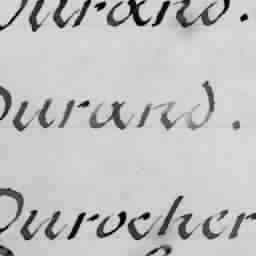 Durand.
Durand.
Durocher